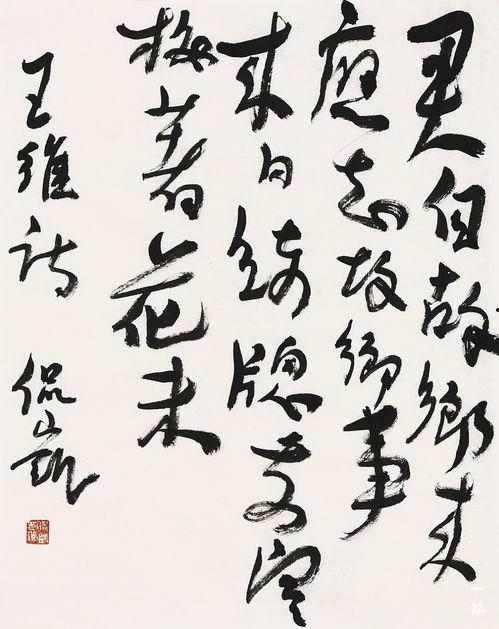 君自故鄉来
應知故鄉事
来日綺牕前寒
梅著花未
王維詩 侃凱